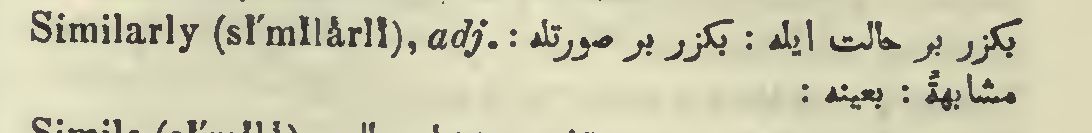 Similarly (sĭ´mĭlårlĭ), adj. : بكزر بر حالت ايله : بكزر بر صورتله
مشابهةً : بعينه :